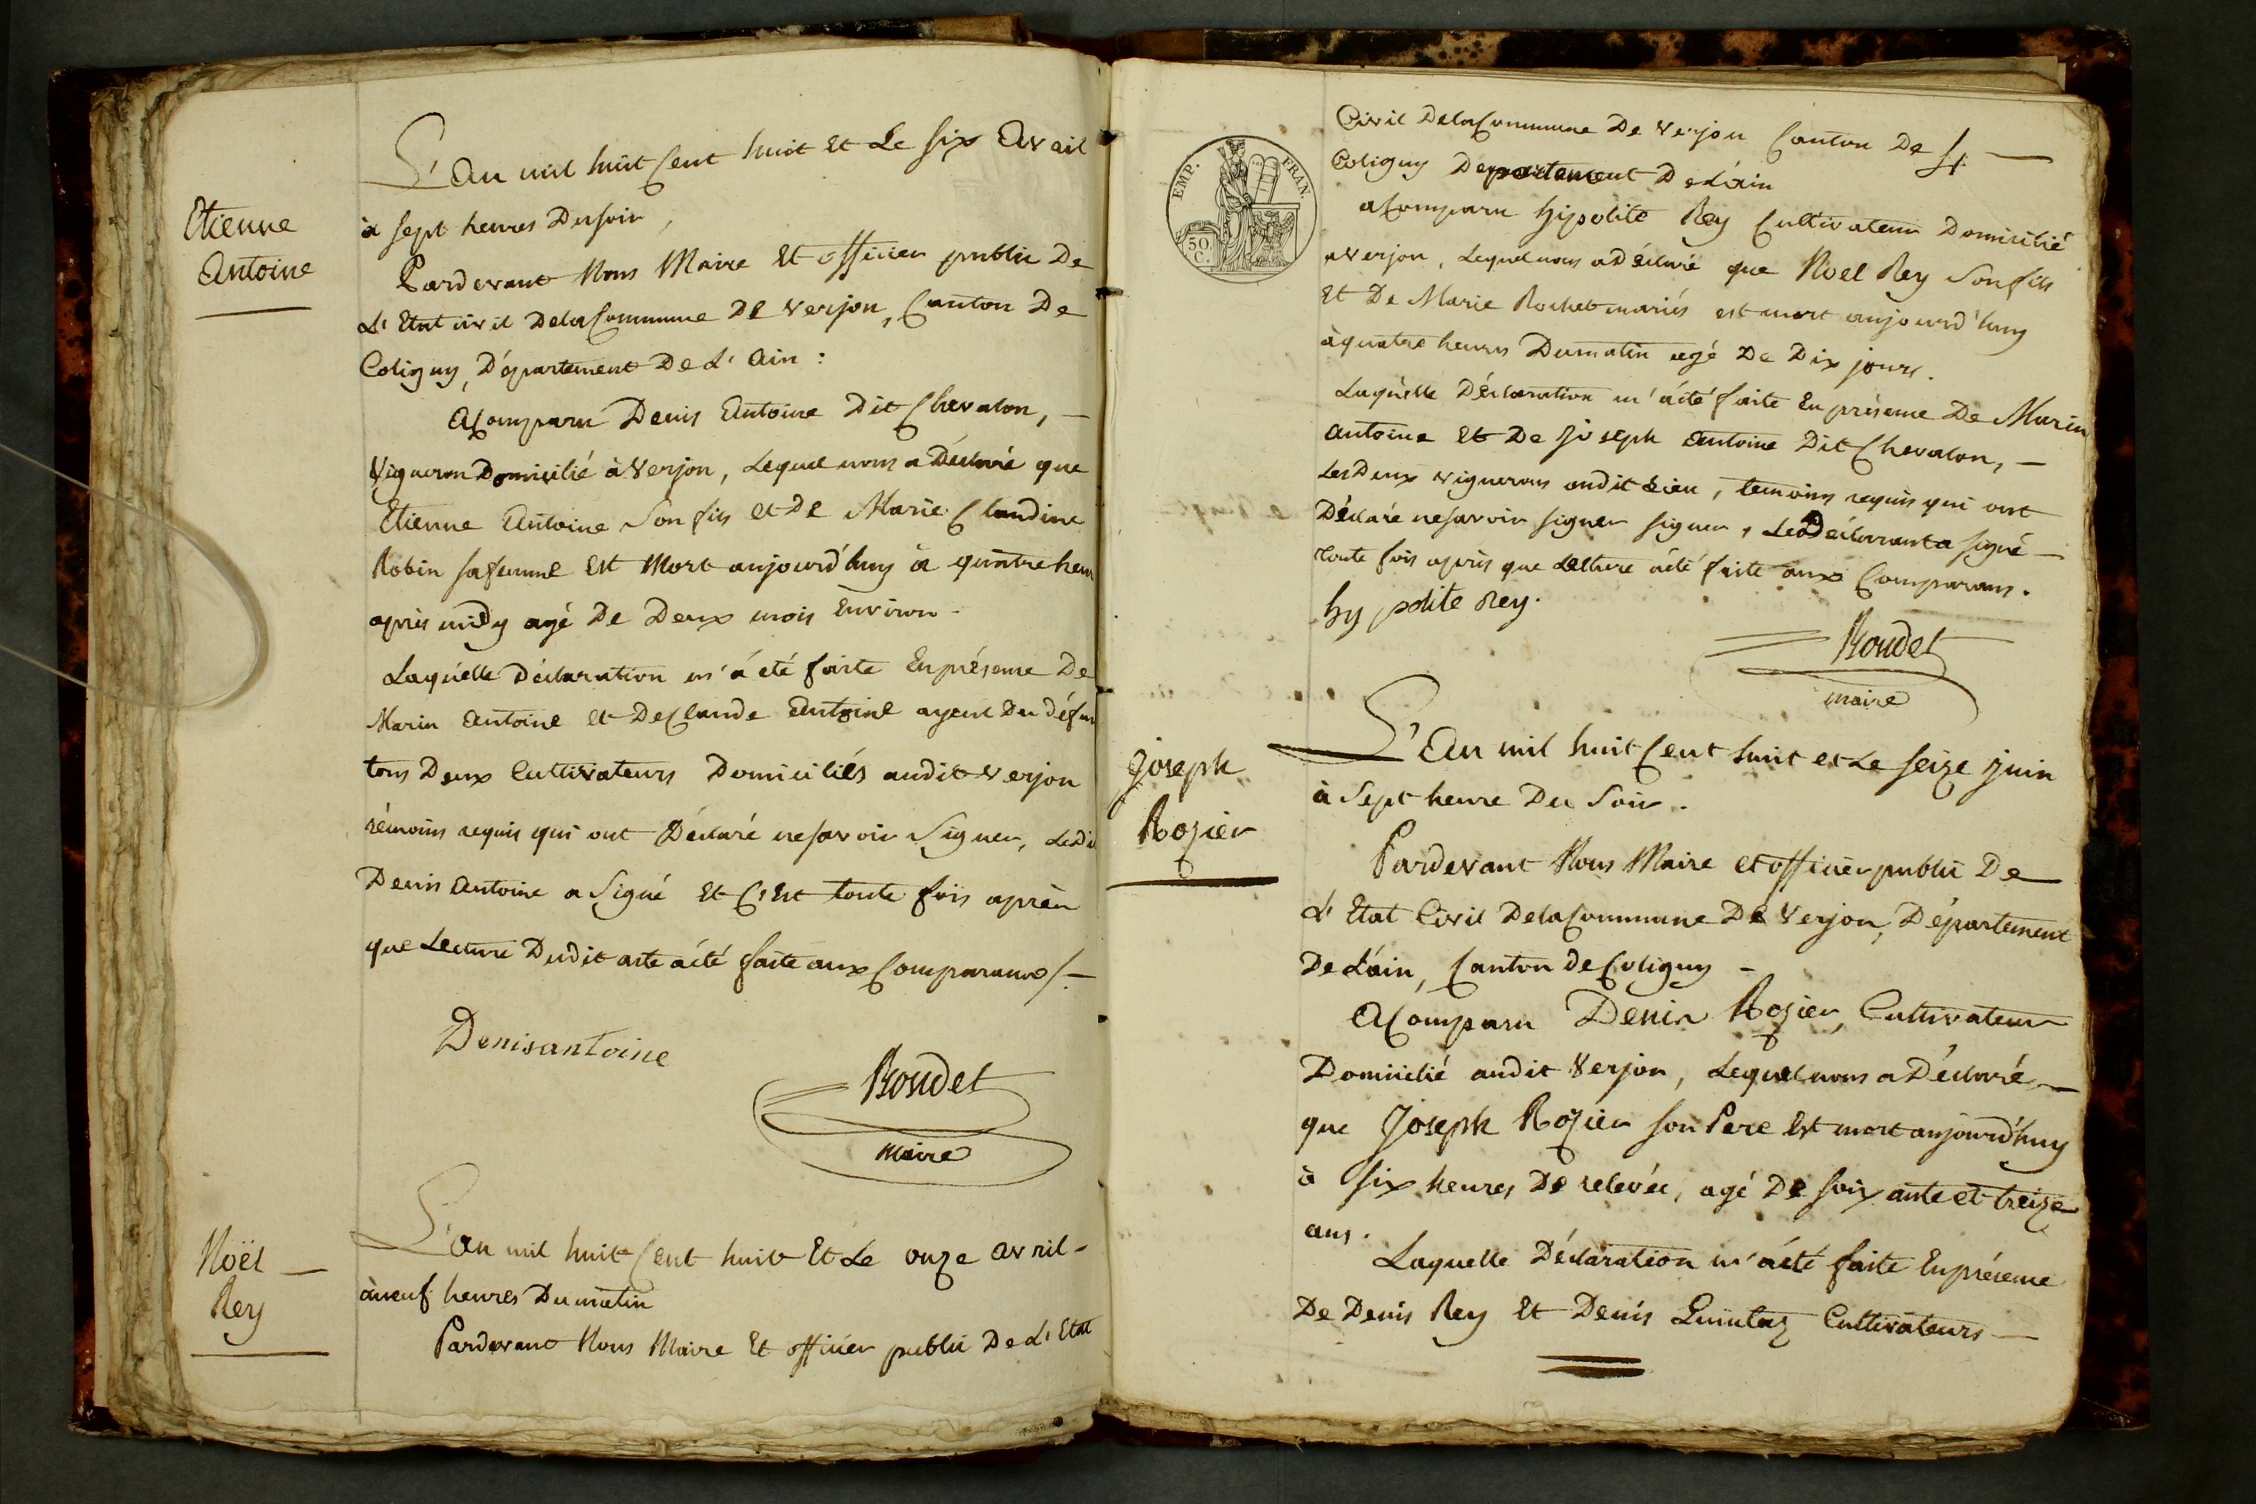 Etienne
Antoine
L'An mil huit Cent huit Et Le six Avril
à sept heures Du soir,
Pardevant Nous Maire Et officier public De
L'Etat civil De la Commune De Verjon, Canton De
Coligny, Département De L'Ain :
A Comparu Denis Antoine Dit Chevalon, —
Vigneron Domicilié à Verjon, Lequel nous a Déclaré que
Etienne Antoine Son fils et De Marie Claudine
Robin sa femme Est Mort aujourd'huy à quatre heur
après midy agé De Deux mois Environ -
Laquélle Déclaration m'a été faite En présence De
Marin Antoine et De Claude Antoine ayeul Du défun
tous Deux Cultivateurs Domiciliés audit Verjon
témoins requis qui ont Déclaré ne savoir Signer, Le Di
Denis Antoine a Signé Et C'Est toute fois après
que Lecture Dudit acte a été faite aux Comparants /. —
Denis antoine
Roudet
Maire
Noël —
Rey
L'an mil huit Cent huit Et Le onze avril -
à neuf heures Du matin
Pardevant Nous Maire Et officier public De L'Etat
EMP. FRAN.
50.
C.
Civil De la Commune De Verjon Canton De
Coligny Departement De L'ain
a Comparu hipolite Rey Cultivateur Domicilié
a Verjon, Lequel nous a Déclaré que Noel Rey Son fils
Et De Marie Rochet mariés est mort aujourd'huy
à quatre heures Du matin agé De Dix jours.
Laquelle Déclaration m'a été faite En présence De Marin
Antoine Et De Joseph Antoine Dit Chevalon, —
Les Deux vignerons audit Lieu, temoins requis qui ont
Déclaré ne savoir signer signer, Le Déclarant a signé —
toute fois après que Lecture a été faite aux Comparans.
hypolite Rey.
Roudet
maire
Joseph
Rozier
L'An mil huit Cent huit et Le seize Juin
à Sept heure Du Soir.
Pardevant Nous Maire et officier public De
L'Etat Civil De la Commune De Verjon, Département
De L'ain, Canton de Coligny -
A Comparu Denis Rozier, Cultivateur
Domicilié audit Verjon, Lequel nous a Déclaré, —
que Joseph Rozier son Pere Est mort aujourd'huy
à six heures De relevée, agé De soixante et treize
ans.
Laquelle Déclaration m'a été faite En présence
De Denis Rey Et Denis Cultivateurs —